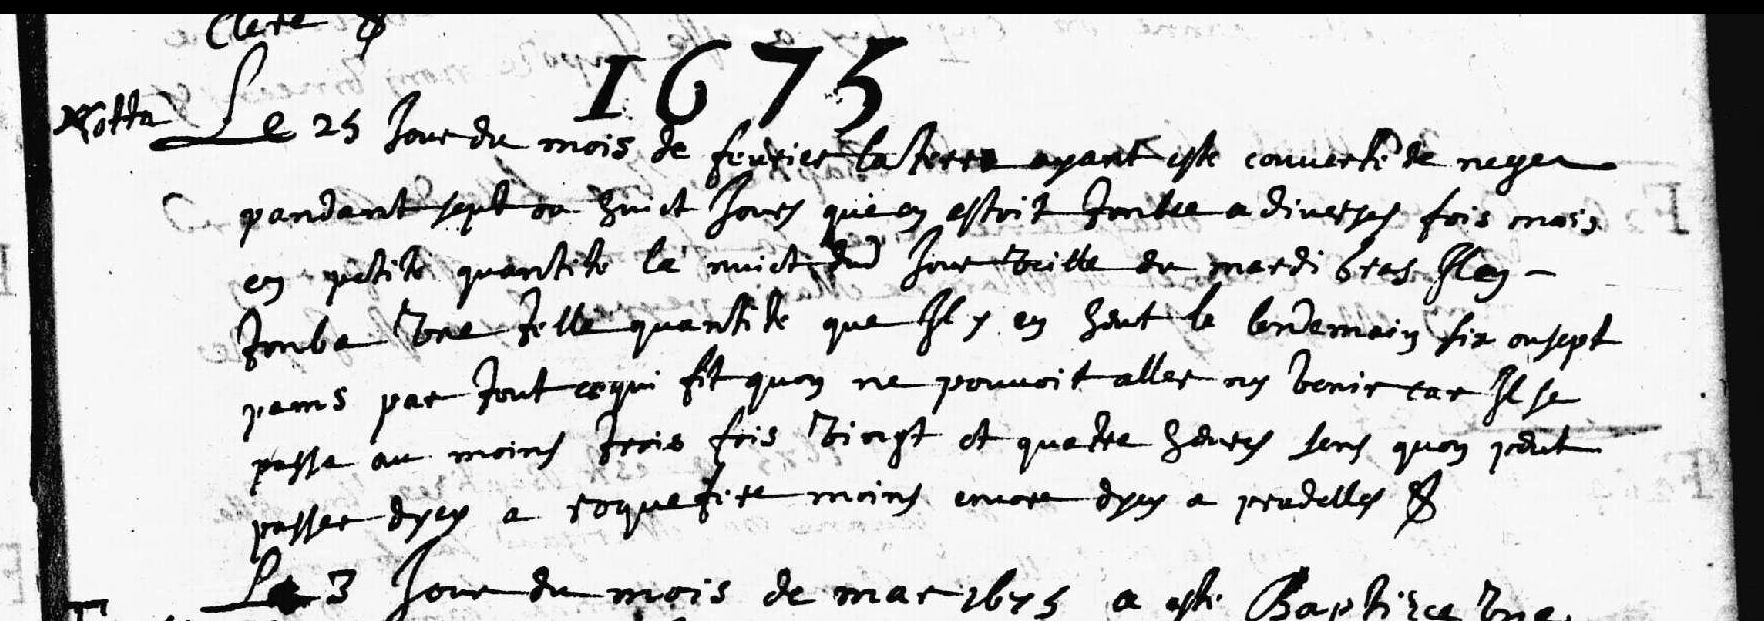 Clerc
1675
Notta Le 25 Jour du mois de feurier la terre ayant este couuerte de neger
pandant sept ou huict Jours que en estoit tombee a diuerses fois mais
en petite quantite la nuict dud Jour veille du mardi gras Il en
tomba vne telle quantite que Il y en heut le lendemain six ou sept
pams par tout ce qui fit quon ne pouuoit aller ny venir car Il se
passa au moins trois fois vingt et quatre heures sens quon peut
passer dycy a roquefire moins encore dycy a pradelles
Le 3 Jour du mois de mar 1675 a este Baptizee vne